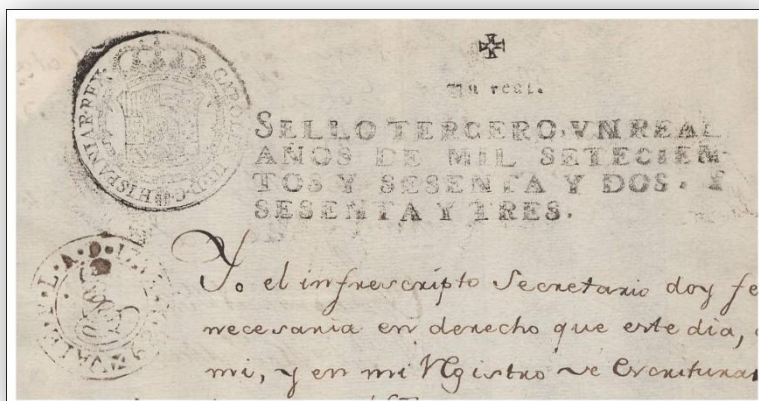 Un real.
SELLO TERCERO, VN REAL
AÑOS DE MIL SETECIEN-
TOS Y SESENTA Y DOS, Y
SESENTA Y TRES.
CAROLUS III·D·G·HISPANIAR·REX
Yo el infrescripto Secretario doy fe
necesaria en derecho que este dia,
mi, y en mi Registro de Escrituras